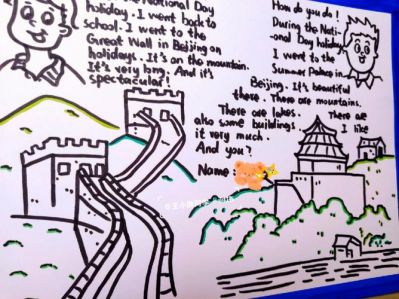 the National Day
holiday. I went back to
school. I went to the
Great Wall in Beijing on
holidays. It's on the mountain.
It's very long. And it's
spectacular!
How do you do!
During the Nati-
-onal Day holiday
I went to the
Summer Palace in
Beijing. It's beautiful
there. There are mountains.
There are lakes. There are
also some buildings. I like
it very much.
And you?
Name: